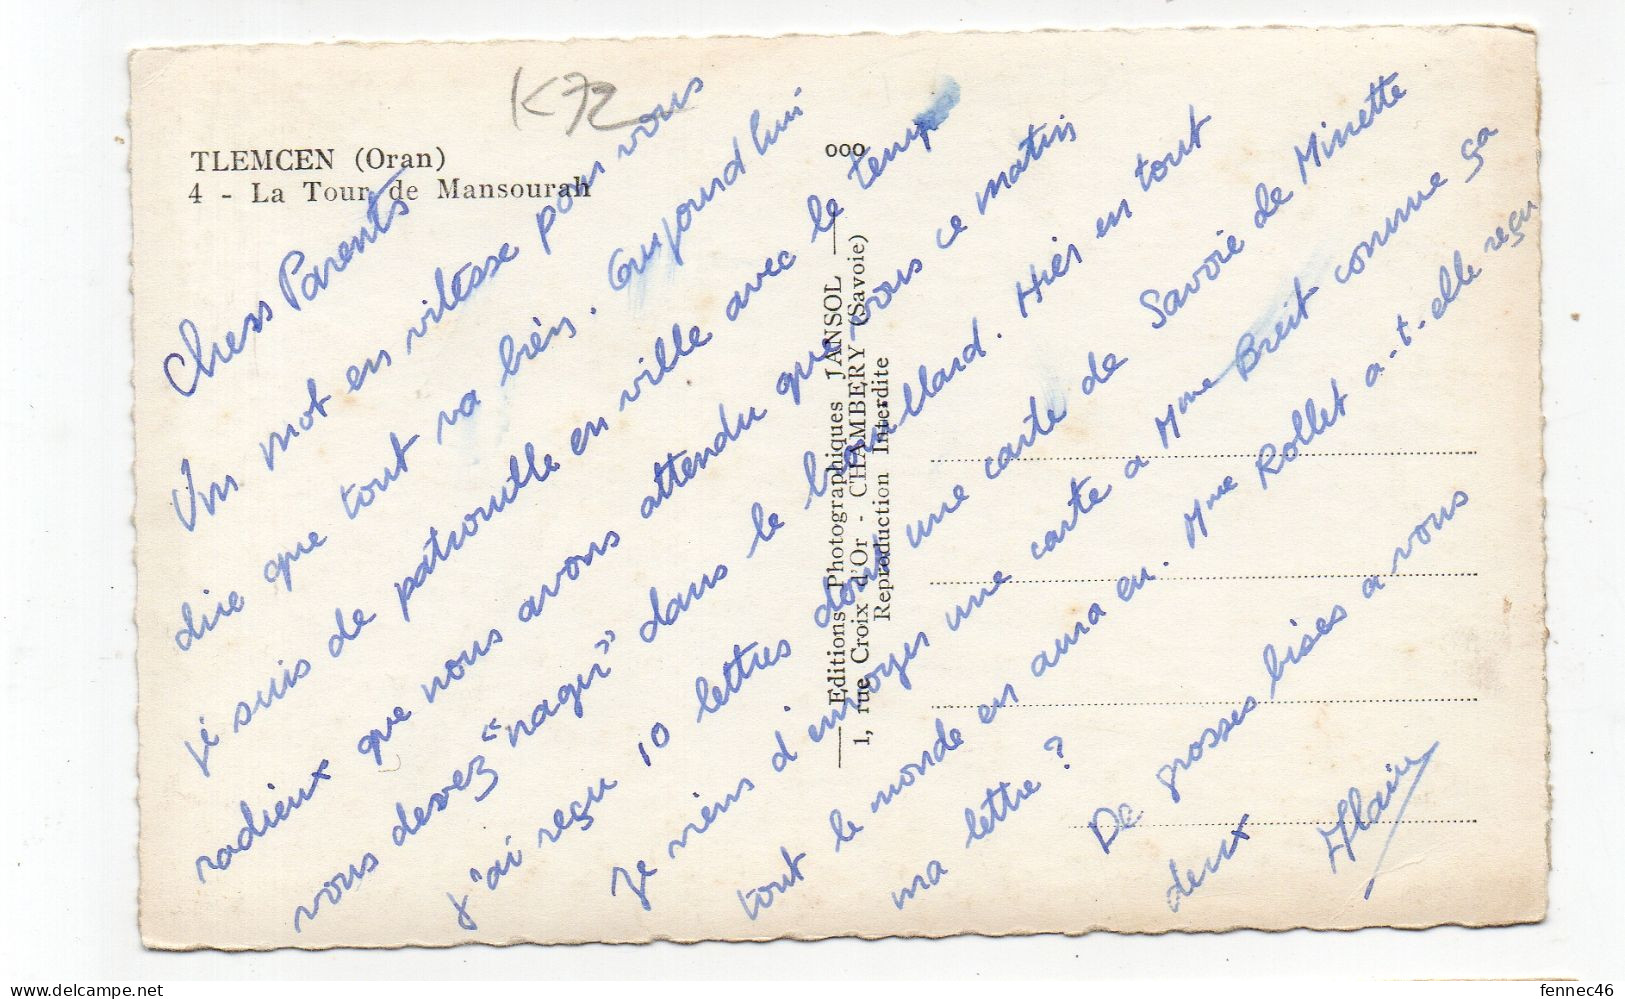 K72
TLEMCEN (Oran)
4 - La Tour de Mansourah
ooo
Editions Photographiques JANSOL
1, rue Croix d'Or - CHAMBERY (Savoie)
Reproduction Interdite
Chers Parents
Un mot en vitesse pour vous
dire que tout va bien. Aujourd'hui
je suis de patrouille en ville avec le temps
radieux que nous avons attendu que vous ce matin
vous devez "nager" dans le brouillard. Hier en tout
j'ai reçu 10 lettres dont une carte de Savoie de Minette
Je viens d'envoyer une carte a Mme Breit comme ça
tout le monde en aura eu. Mme Rollet a-t-elle reçu
ma lettre ?
De grosses bises a vous
deux
Alain
fennec46